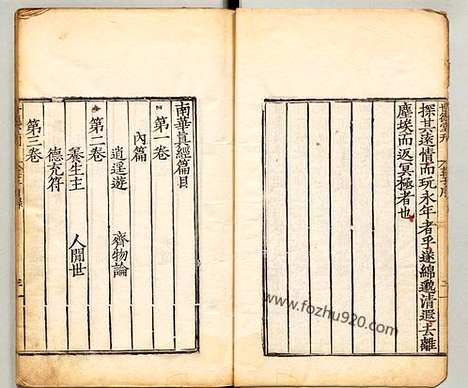 探其遠情而玩永年者乎遂綿邈清遐去離
塵埃而返冥極者也
南華真經篇目
第一卷
內篇
逍遙遊 齊物論
第二卷
養生主 人間世
第三卷
德充符
www.fozhu920.com